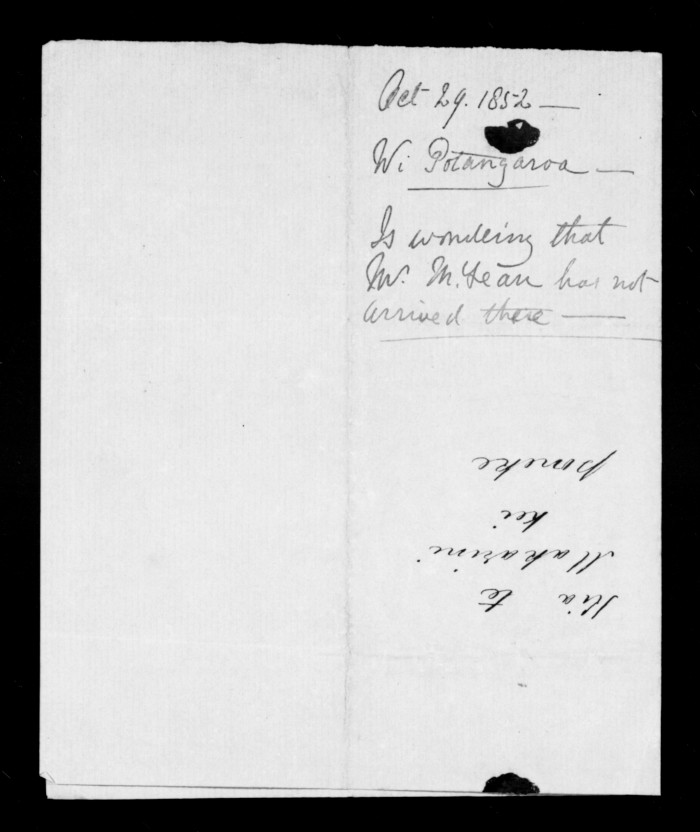 Oct 29. 1852 —
Wi Potangaroa —
Is wondering that
Mr. McLean has not
arrived there —
Kia te
Makarini
kei
poneke